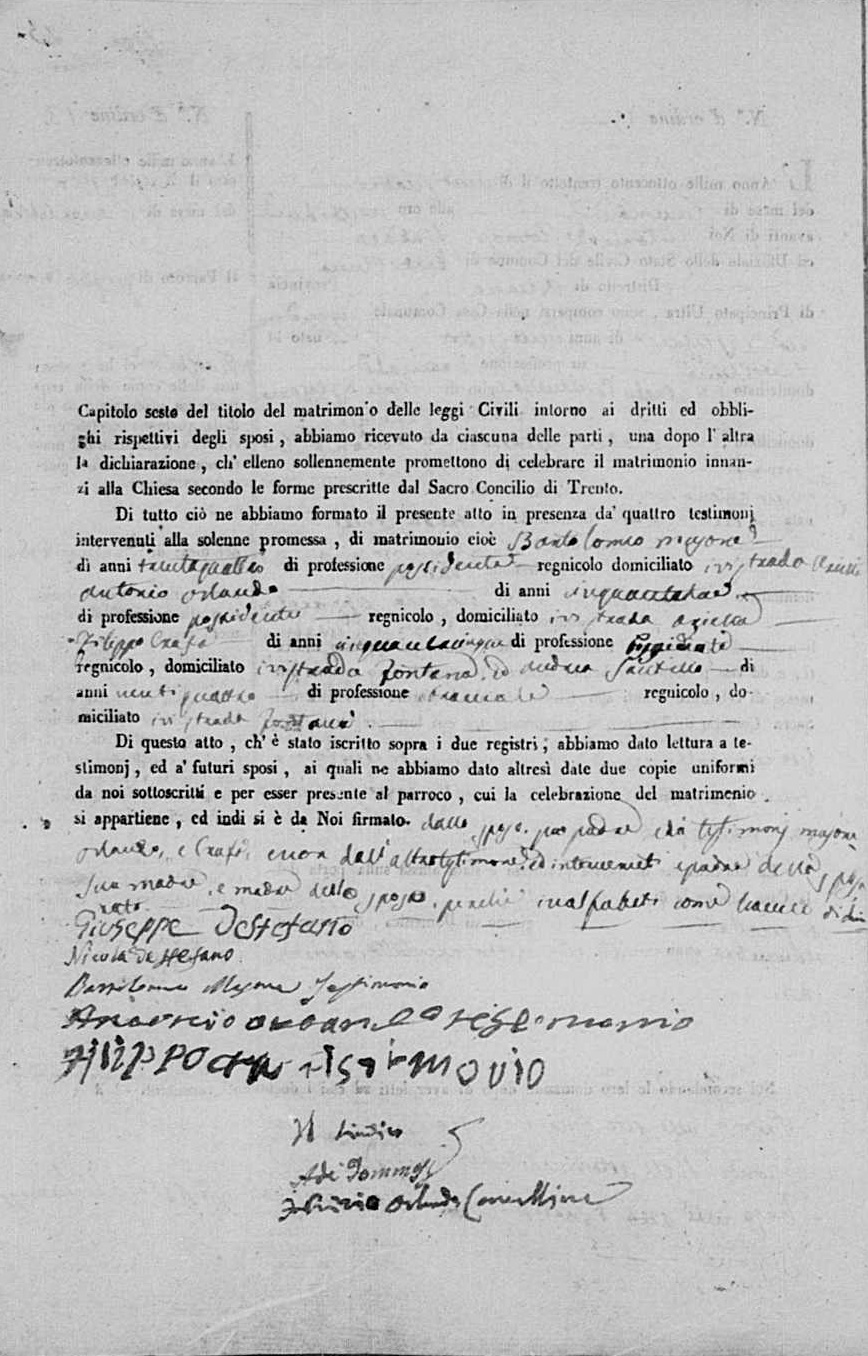 Capitolo sesto del titolo del matrimon'o delle leggi Civili intorno ai dritti ed obbli-
ghi rispettivi degli sposi, abbiamo ricevuto da ciascuna delle parti, una dopo l'altra
la dichiarazione, ch'elleno sollennemente promettono di celebrare il matrimonio innan-
zi alla Chiesa secondo le forme prescritte dal Sacro Concilio di Trento.
Di tutto ciò ne abbiamo formato il presente atto in presenza da' quattro testimonj
intervenuti alla solenne promessa, di matrimonio cioè Bartolomeo Majone
di anni trentaquattro di professione possidente regnicolo domiciliato in strada
Antonio Orlando di anni cinquantatre
di professione possidente regnicolo, domiciliato in strada
Filippo Crafa di anni cinquantacinque di professione possidente
regnicolo, domiciliato in strada fontana, ed Andrea Santillo di
anni ventiquattro di professione bracciale regnicolo, do-
miciliato in strada fontana.
Di questo atto, ch'è stato iscritto sopra i due registri; abbiamo dato lettura a te-
stimonj, ed a' futuri sposi, ai quali ne abbiamo dato altresì date due copie uniformi
da noi sottoscritti e per esser presente al parroco, cui la celebrazione del matrimenio
si appartiene, ed indi si è da Noi firmato. dallo sposo, suo padre e da testimonj Majone
Orlando, e Crafa, e non dall'altro testimone, ed intervenienti sposa
sua madre, e madre dello sposo, perchè inalfabeti come hanno di
Giuseppe DeStefano
Nicola de Stefano
Bartolomeo Majone Testimonio
Antonio Orlando testimonio
Filippo Crafa testimonio
Il Sindaco